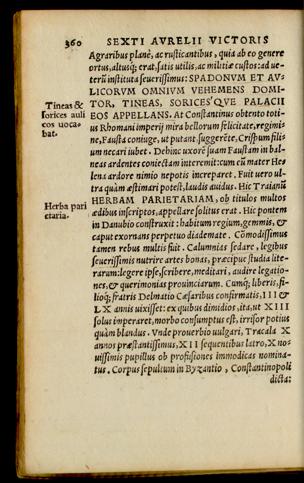 360 SEXTI AVRELII VICTORIS
Agraribus planè, ac rusticantibus, quia ab eo genere
ortus, altusq; erat, satis utilis, ac militiæ custos: ad ue-
terũ instituta seuerissimus: SPADONVM ET AV-
LICORVM OMNIVM VEHEMENS DOMI-
TOR, TINEAS, SORICES'QVE PALACII
EOS APPELLANS. At Constantinus obtento toti-
us Rhomani imperij mira bellorum felicitate, regimi-
ne, Fausta coniuge, ut putant suggerēte, Crispum filiũ
um necari iubet. Dehinc uxorē suam Faustam in bal-
neas ardentes coniectam interemit: cum eũ mater Hes
lena ardore nimio nepotis increparet. Fuit uero ul-
tra quàm æstimari potest, laudis auidus. Hic Traianũ
HERBAM PARIETARIAM, ob titulos multos
ædibus inscriptos, appellare solitus erat. Hic pontem
in Danubio construxit: habitum regium, gemmis, &
caput exornans perpetuo diademate. Cōmodissimus
tamen rebus multis fuit. Calumnias sedare, legibus
seuerissimis nutrire artes bonas, præcipuè studia lite-
rarum: legere ipse, scribere, meditari, audire legatio-
nes, & querimonias prouinciarum. Cumq; liberis, fi-
lioq; fratris Delmatio Cæsaribus confirmatis, III &
LX annis uixisset: ex quibus dimidios, ita, ut XIII
solus imperaret, morbo consumptus est, irrisor potius
quàm blandus. Vnde prouerbio uulgari, Tracala X
annos præstantissimus, XII sequentibus latro, X no-
uissimis pupillus ob profusiones immodicas nomina-
tus. Corpus sepultum in Byzantio, Constantinopoli
dicta:
Tineas &
sorices auli
cos uoca-
bat.
Herba pari
etaria.